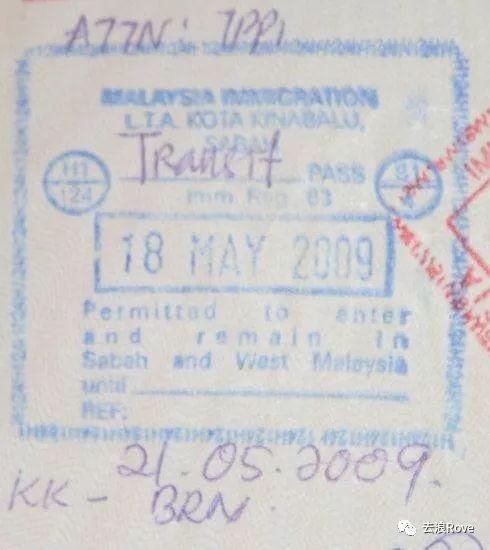 ATTN: IPPI
MALAYSIA IMMIGRATION
L.T.A. KOTA KINABALU,
SABAH
Transit PASS
H1
124
Imm Reg. 63
18 MAY 2009
Permitted to enter
and remain in
Sabah and West Malaysia
until
REF:
21.05.2009.
KK - BRN.
去浪Rove